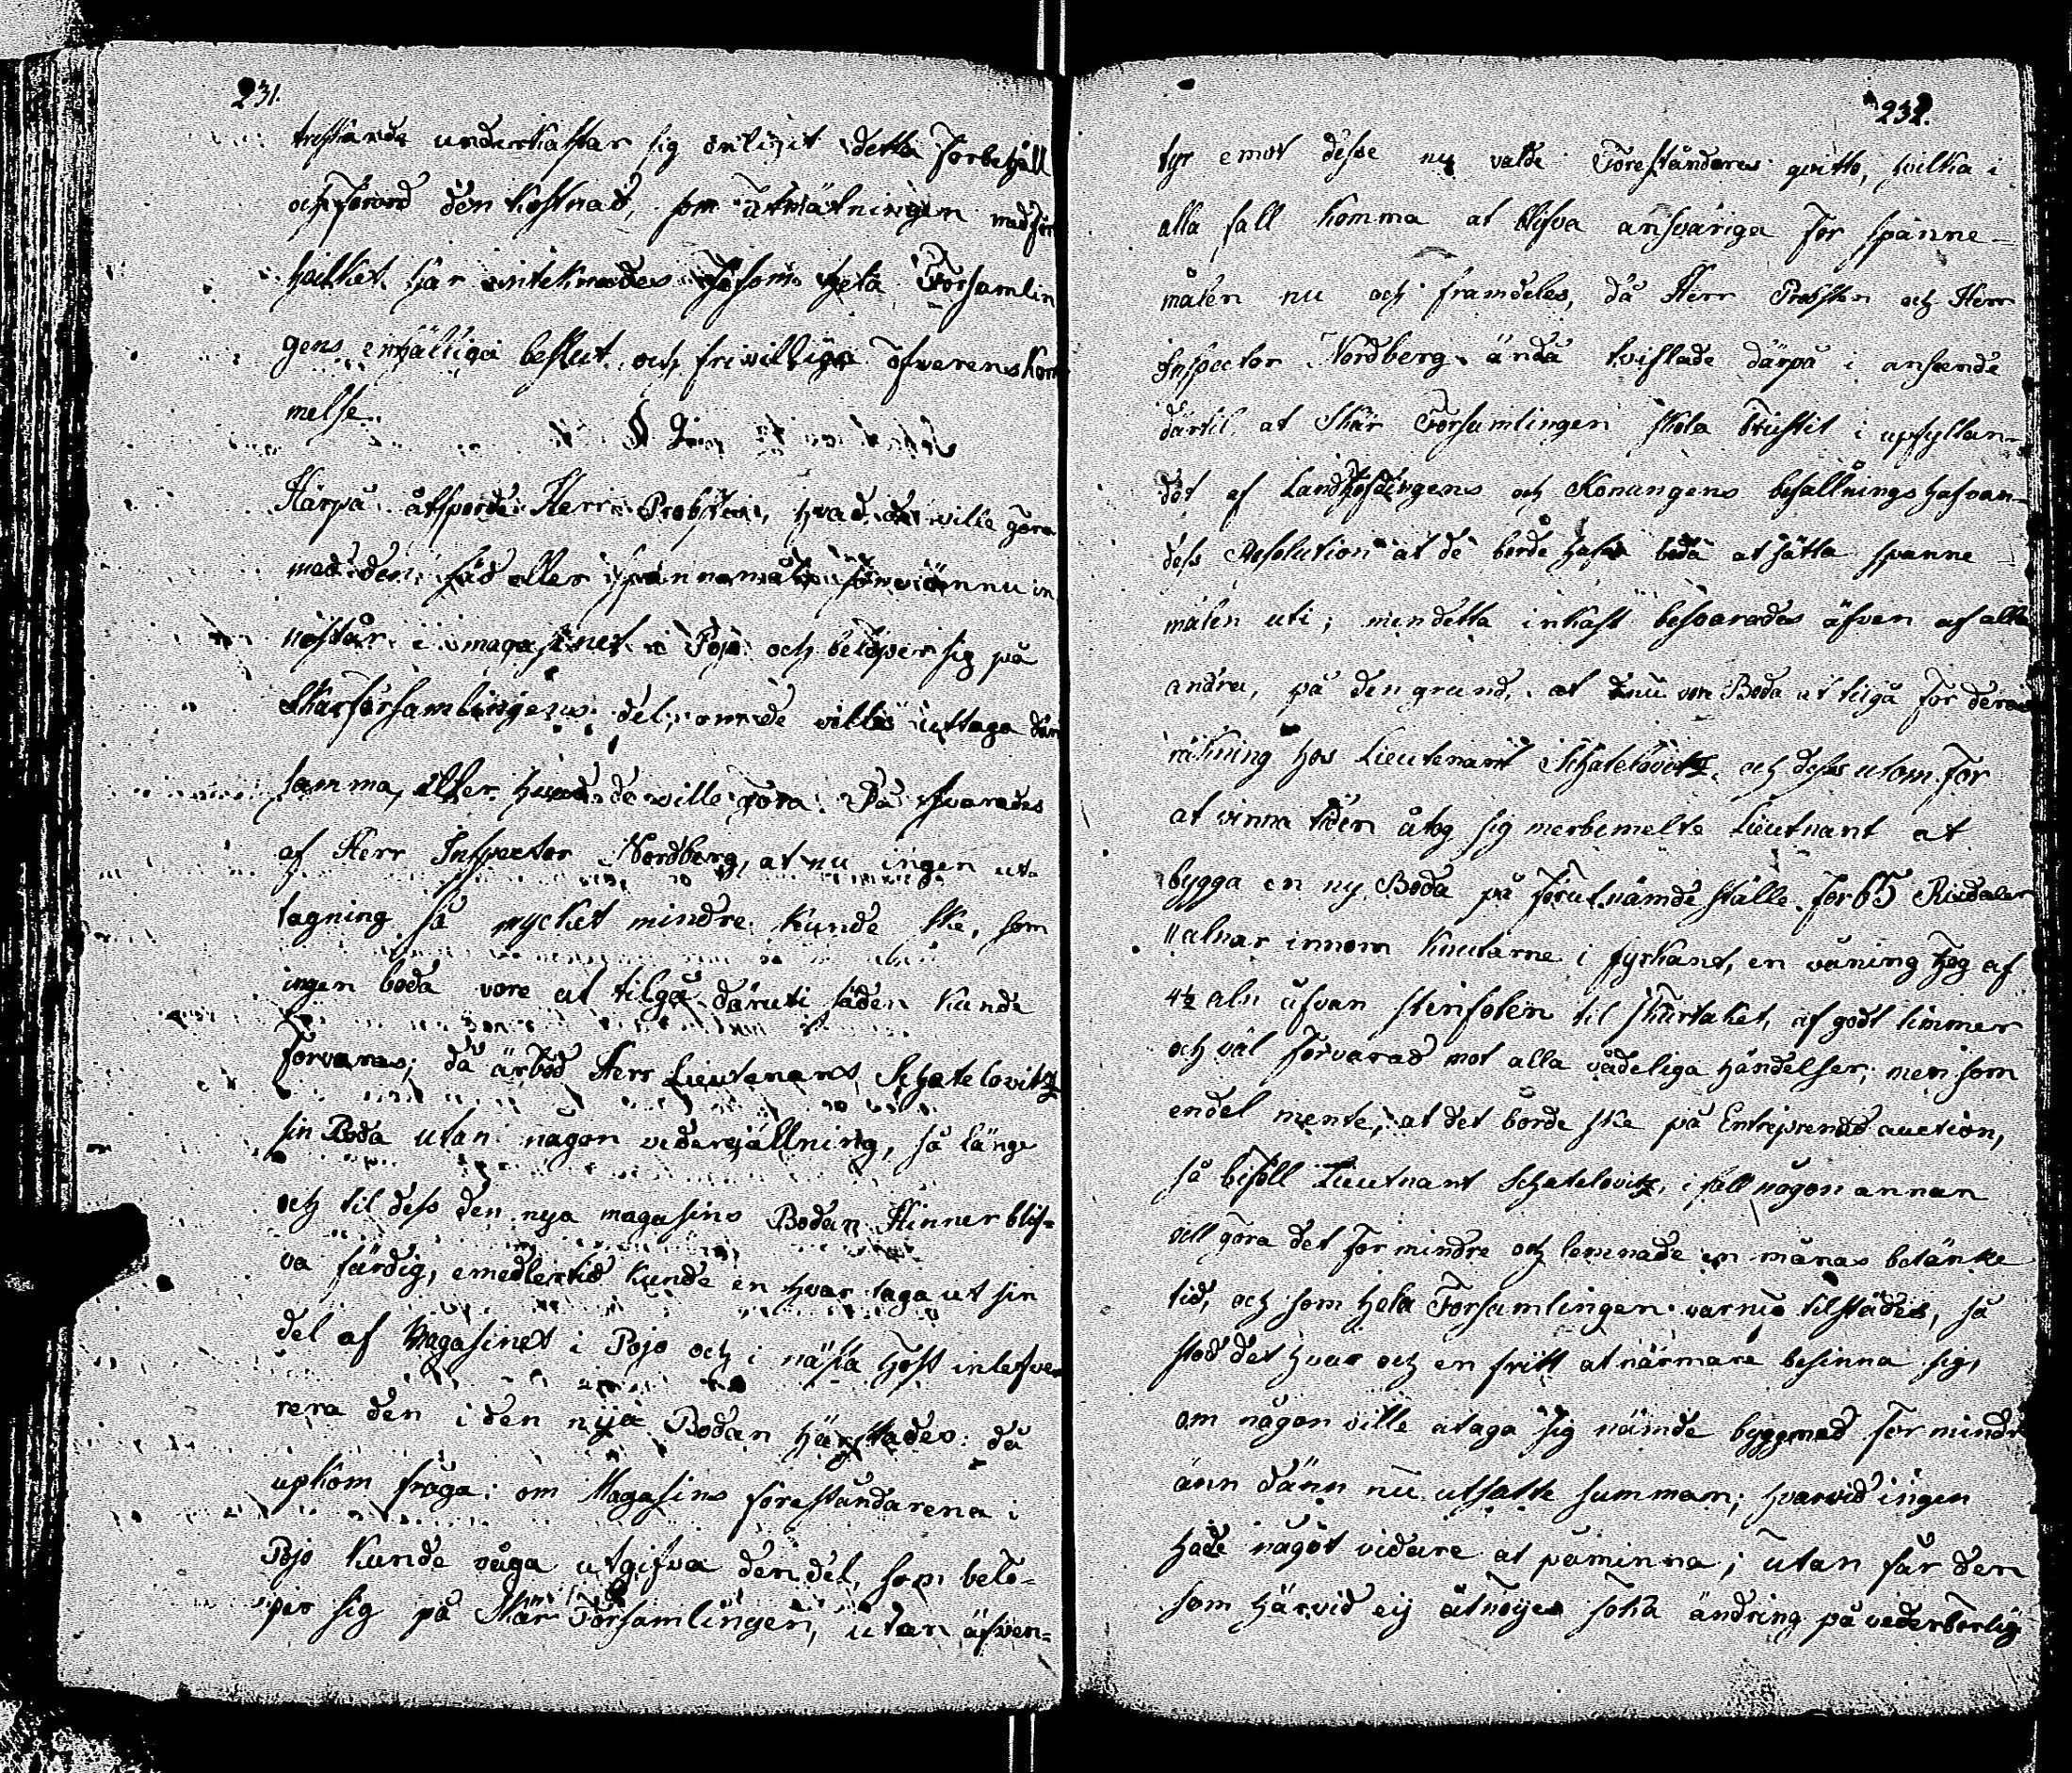 231.
treskande underkastar sig enligit detta Forbehåll
och forord den kostnad, som utmätningen medför
hvilket här inteknades såsom hela Forsamlin
gens enhälliga beslut och friwilliga öfverenskom
melse.
§ 2
Härpå åtsporde Herr Probsten, hvad de wille göra
med den säd eller spannemål som ännu in
nestår i magasinet i Pojo och belöper sig på
Skärförsamlingens del, om de ville uttaga den
samma, eller hvad de wille göra. Då svarades
af Herr Inspector Nordberg, at nu ingen ut-
tagning så mycket mindre kunde ske, som
ingen boda vore at tilgå däruti säden kunde
forvaras; då ärböd Herr Lieutenant Schatelovitz
sin Boda utan någon vedergällning, så länge
och til dess den nya magasins Bodan hinner blif-
va färdig, emedlertid kunde en hvar taga ut sin
del af Magasinet i Pojo och i nästa höst inlefve
rera den i den nya Bodan härstädes. då
upkom fråga: om Magasins forestandarena i
Pojo kunde våga utgifva den del, som belö-
per sig på Skär Forsamlingen, utan äfven-
232.
tyr emot desse ny valde Forestandares qvitto, hvilka i
alla fall komma at blifva ansvariga for spanne-
målen nu och framdeles, då Herr Probsten och Herr
Inspector Nordberg ända tviflade därpå i anseende
därtil at Skär Forsamlingen skola brustit i upfyllan-
det af Landshöfdingens och Konungens befallningshafvan-
dess Resolution at de borde hafva boda at sätta spanne-
målen uti; men detta inkast besvarades äfven af alla
andra, på den grund, at nu vore Boda at tilgå for deras
räkning hos Lieutenant Schatelovitz, och dessutom for
at vinna tiden åtog sig merbemelte Lieutnant at
bygga en ny Boda på förutnämde ställe for 65 Riksdaler
11 alnar innom knutarne i fyrkant, en våning hög af
4½ aln åfvan stenfoten til skurtaket, af godt timmer
och väl förvarad mot alla vådeliga händelser; men som
endel mente, at det borde ske på Entreprenad auction,
så biföll Lieutnant Schatelovitz, i fall någon annan
vill göra det for mindre och lemnade en månas betänke
tid, och som hela Forsamlingen var nu tilstädes, så
stod det hvar och en fritt at närmare besinna sig,
om någon ville åtaga sig nämde byggnad for mindre
änn dänn nu utsatte summan; hvarvid ingen
hade något vidare at påminna; utan får den
som härvid ej åtnöjes söka ändring på vederbörlig